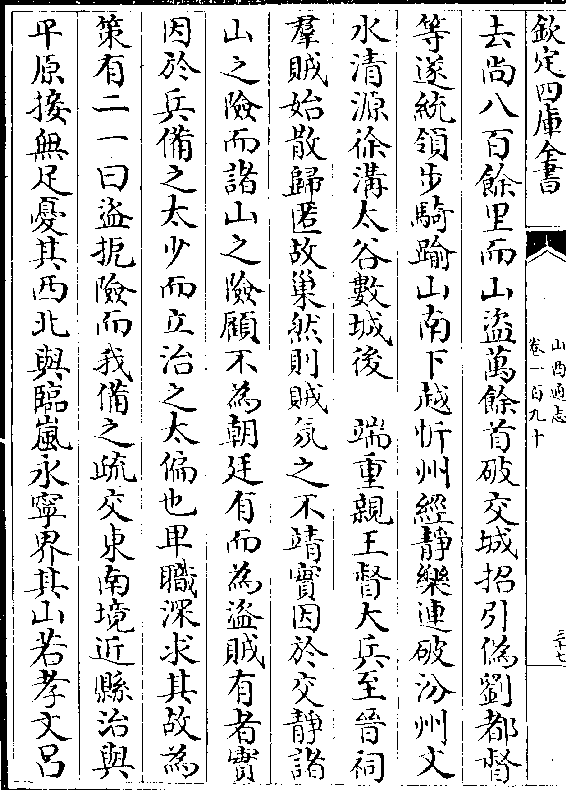 欽定四庫全書
山西通志
卷一百九十
三十七
去尚八百餘里而山盜萬餘首破交城招引偽劉都督
等遂統領步騎踰山南下越忻州經靜樂連破汾州文
水清源徐溝太谷數城後　端重親王督大兵至晉祠
羣賊始散歸匿故巢然則賊氛之不靖實因於交靜諸
山之險而諸山之險顧不為朝廷有而為盜賊有者實
因於兵備之太少而立治之太偏也卑職深求其故為
策有二一曰盜扼險而我備之疏交東南境近縣治與
平原接無足憂其西北與臨嵐永寧界其山若孝文呂